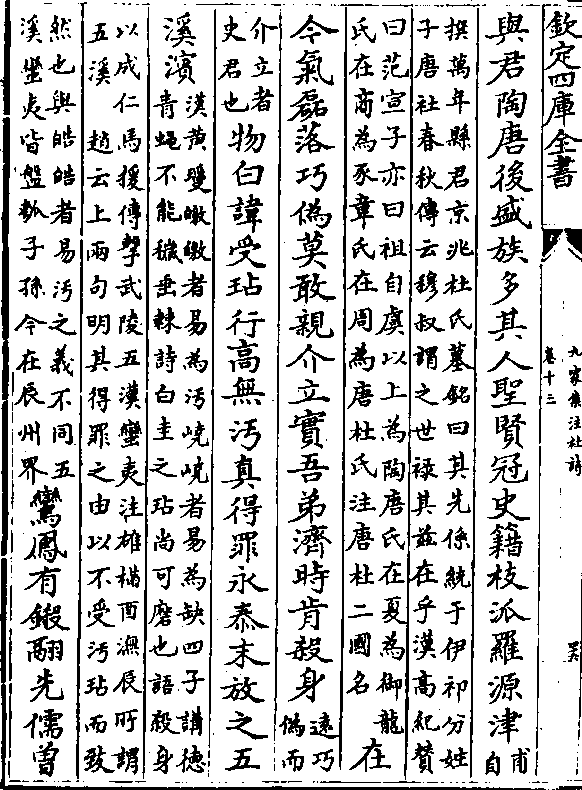 欽定四庫全書
九家集注杜詩
卷十三
與君陶唐後盛族多其人聖賢冠史籍枝派羅源津
甫
自
撰萬年縣君京兆杜氏墓銘曰其先係統于伊祁分姓
子唐社春秋傳云穆叔謂之世禄其兹在乎漢髙紀賛
曰范宣子亦曰祖自虞以上為陶唐氏在夏為御龍
氏在商為豕韋氏在周為唐杜氏注唐杜二國名
在
今氣磊落巧偽莫敢親介立實吾弟濟時肯殺身
逺巧
偽而
介立者
史君也
物白諱受玷行髙無汚真得罪永泰末放之五
溪濱
漢黄瓊皦皦者易為汚嶢嶢者易為缺四子講徳
青蝇不能穢垂棘詩白圭之玷尚可磨也語殺身
以成仁馬援傳擊武陵五漢蠻夷注雄樠酉潕辰所謂
五溪 趙云上兩句明其得罪之由以不受汚玷而致
然也與皓皓者易汚之義不同五
溪蠻夷皆盤瓠子孫今在辰州界
鸞鳳有鎩翮先儒曽